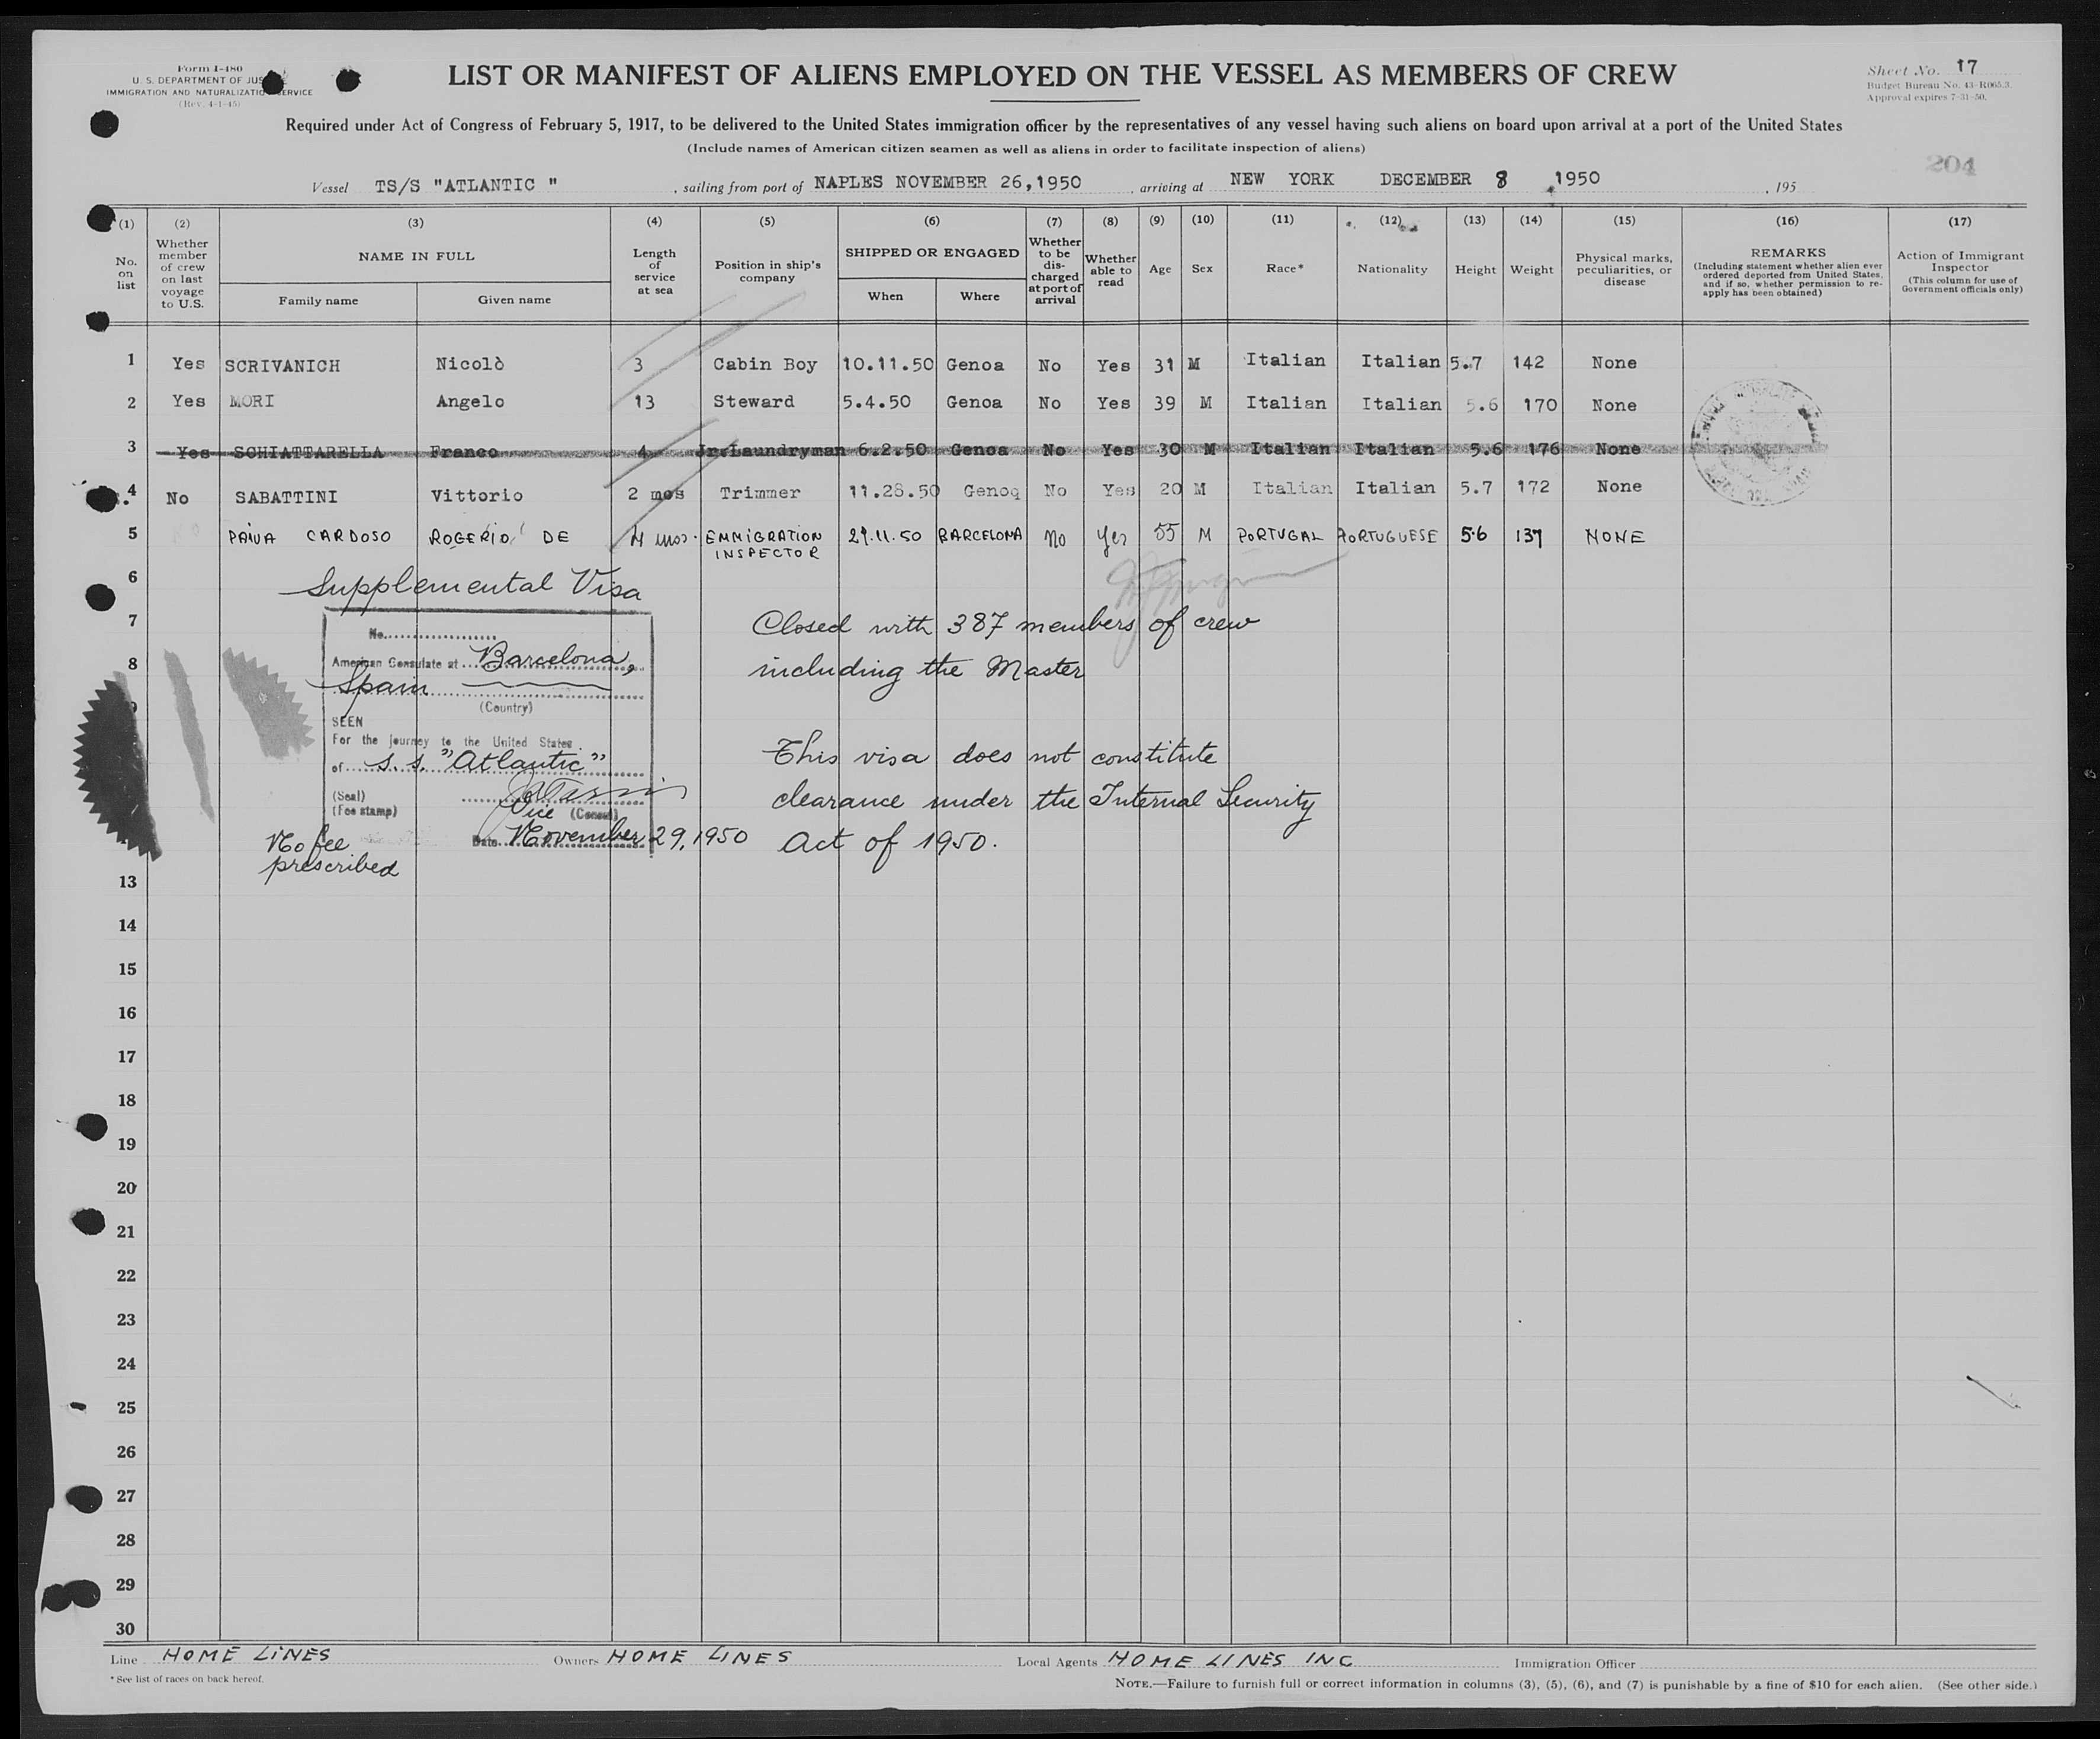 Form I-480
U. S. DEPARTMENT OF JUS
IMMIGRATION AND NATURALIZATIO SERVICE
(Rev. 4-1-45)
LIST OR MANIFEST OF ALIENS EMPLOYED ON THE VESSEL AS MEMBERS OF CREW
Sheet No. 17
Budget Bureau No. 43-R065.3.
Approval expires 7-31-50.
Required under Act of Congress of February 5, 1917, to be delivered to the United States immigration officer by the representatives of any vessel having such aliens on board upon arrival at a port of the United States
(Include names of American citizen seamen as well as aliens in order to facilitate inspection of aliens)
204
Vessel TS/S "ATLANTIC " , sailing from port of NAPLES NOVEMBER 26,1950 , arriving at NEW YORK DECEMBER 8 1950 , 195
(1) No. on list
(2) Whether member of crew on last voyage to U.S.
(3) NAME IN FULL Family name Given name
(4) Length of service at sea
(5) Position in ship's company
(6) SHIPPED OR ENGAGED When Where
(7) Whether to be dis-charged at port of arrival
(8) Whether able to read
(9) Age
(10) Sex
(11) Race*
(12) Nationality
(13) Height
(14) Weight
(15) Physical marks, peculiarities, or disease
(16) REMARKS (Including statement whether alien ever ordered deported from United States, and if so, whether permission to re-apply has been obtained)
(17) Action of Immigrant Inspector (This column for use of Government officials only)
1 Yes SCRIVANICH Nicolò 3 Cabin Boy 10.11.50 Genoa No Yes 31 M Italian Italian 5.7 142 None
2 Yes MORI Angelo 13 Steward 5.4.50 Genoa No Yes 39 M Italian Italian 5.6 170 None
3 Yes SCHIATTARELLA Franco 4 Jr.Laundryman 6.2.50 Genoa No Yes 30 M Italian Italian 5.6 176 None
4 No SABATTINI Vittorio 2 mos Trimmer 11.28.50 Genoa No Yes 20 M Italian Italian 5.7 172 None
5 PAIVA CARDOSO ROGERIO DE 4 mos. EMMIGRATION INSPECTOR 29.11.50 BARCELONA No Yes 55 M PORTUGAL PORTUGUESE 5.6 137 NONE
6 Supplemental Visa
7 Closed with 387 members of crew
No.
8 including the Master
American Consulate at Barcelona,
Spain
(Country)
SEEN
For the journey to the United States
of S. S. "Atlantic"
This visa does not constitute
(Seal)
(Fee stamp)
Vice (Consul)
clearance under the Internal Security
Date November 29, 1950
Act of 1950.
No fee
prescribed
13
14
15
16
17
18
19
20
21
22
23
24
25
26
27
28
29
30
Line HOME LINES Owners HOME LINES Local Agents HOME LINES INC Immigration Officer
* See list of races on back hereof.
NOTE.—Failure to furnish full or correct information in columns (3), (5), (6), and (7) is punishable by a fine of $10 for each alien. (See other side.)